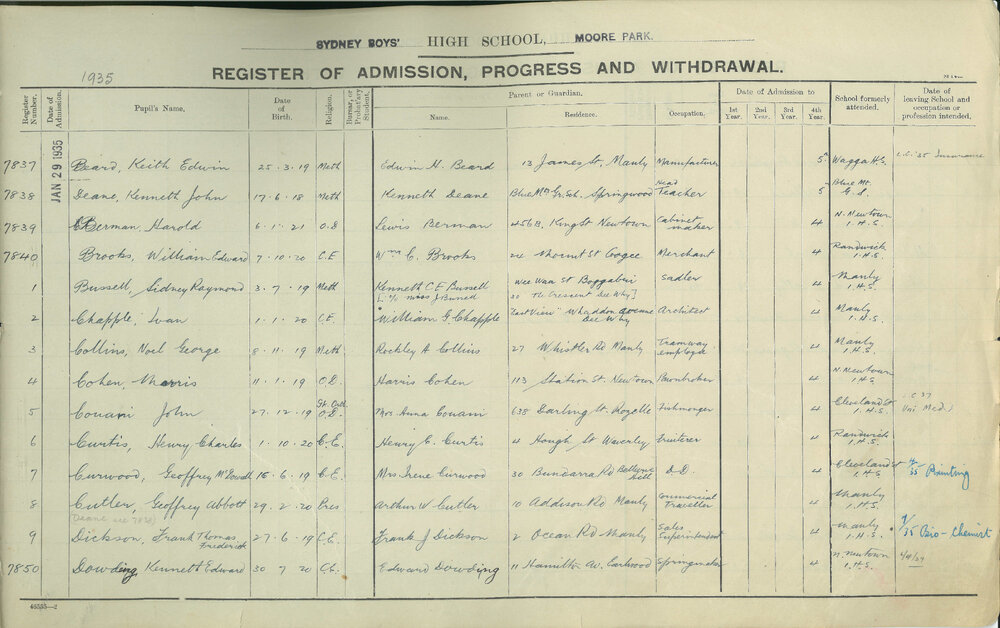 SYDNEY BOYS' HIGH SCHOOL, MOORE PARK.
1935 REGISTER OF ADMISSION, PROGRESS AND WITHDRAWAL.
Register Number. Date of Admission. Pupil's Name. Date of Birth. Religion. Bursar, or Probat'ary Student. Parent or Guardian. Name. Residence. Occupation. Date of Admission to 1st Year. 2nd Year. 3rd Year. 4th Year. School formerly attended. Date of leaving School and occupation or profession intended.
JAN 29 1935
7837 Beard, Keith Edwin 25.3.19 Meth Edwin H. Beard 13 James St, Manly Manufacturer 5 Wagga H.S. L.C. '35 Insurance
7838 Deane, Kenneth John 17.6.18 Meth Kenneth Deane Blue Mtn Gr. Sch. Springwood Head Teacher 5 Blue Mt. G.S.
7839 Berman, Harold 6.1.21 Lewis Berman 456B, King St Newtown Cabinet maker 4 N. Newtown I.H.S.
7840 Brooks, William Edward 7.10.20 C.E. Wm E. Brooks 24 Mount St Coogee Merchant 4 Randwick I.H.S.
1 Bussell, Sidney Raymond 3.7.19 Meth Kenneth C.E Bussell Wee Waa St Boggabri Sadler 4 Manly I.H.S.
30 The Crescent Dee Why
2 Chapple, Ivan 1.1.20 C.E. William G Chapple "East View" Whaddon Avenue Dee Why Architect 4 Manly I.H.S.
3 Collins, Noel George 8.11.19 Meth. Rockley A Collins 27 Whistler Rd Manly Tramway employé 4 Manly I.H.S.
4 Cohen, Morris 11.1.19 Harris Cohen 113 Station St. Newtown Pawnbroker 4 N. Newtown I.H.S.
5 Comani John 27.12.19 Mrs. Anna Comani 638 Darling St. Rozelle Fishmonger 4 Cleveland St I.H.S. Uni Med.
6 Curtis, Henry Charles 1.10.20 C.E. Henry E. Curtis 4 Hough St Waverley Fruiterer 4 Randwick I.H.S.
7 Curwood, Geoffrey 15.6.19 C.E. Mrs Irene Curwood 30 Bundarra Rd Bellevue Hill D.D. 4 Cleveland St I.H.S. Printing
8 Cutler, Geoffrey Abbott 29.2.20 Pres Arthur W Cutler 10 Addison Rd Manly Commercial Traveller 4 Manly I.H.S.
(Deane see 7838)
9 Dickson, Frank Thomas Frederick 27.6.19 C.E. Frank J Dickson 2 Ocean Rd Manly Sales Superintendent 4 Manly I.H.S. Bio-Chemist
7850 Dowding, Kenneth Edward 30 7 20 C.E. Edward Dowding 11 Hamilton Av. Earlwood Springmaker 4 N. Newtown I.H.S.
46535—2